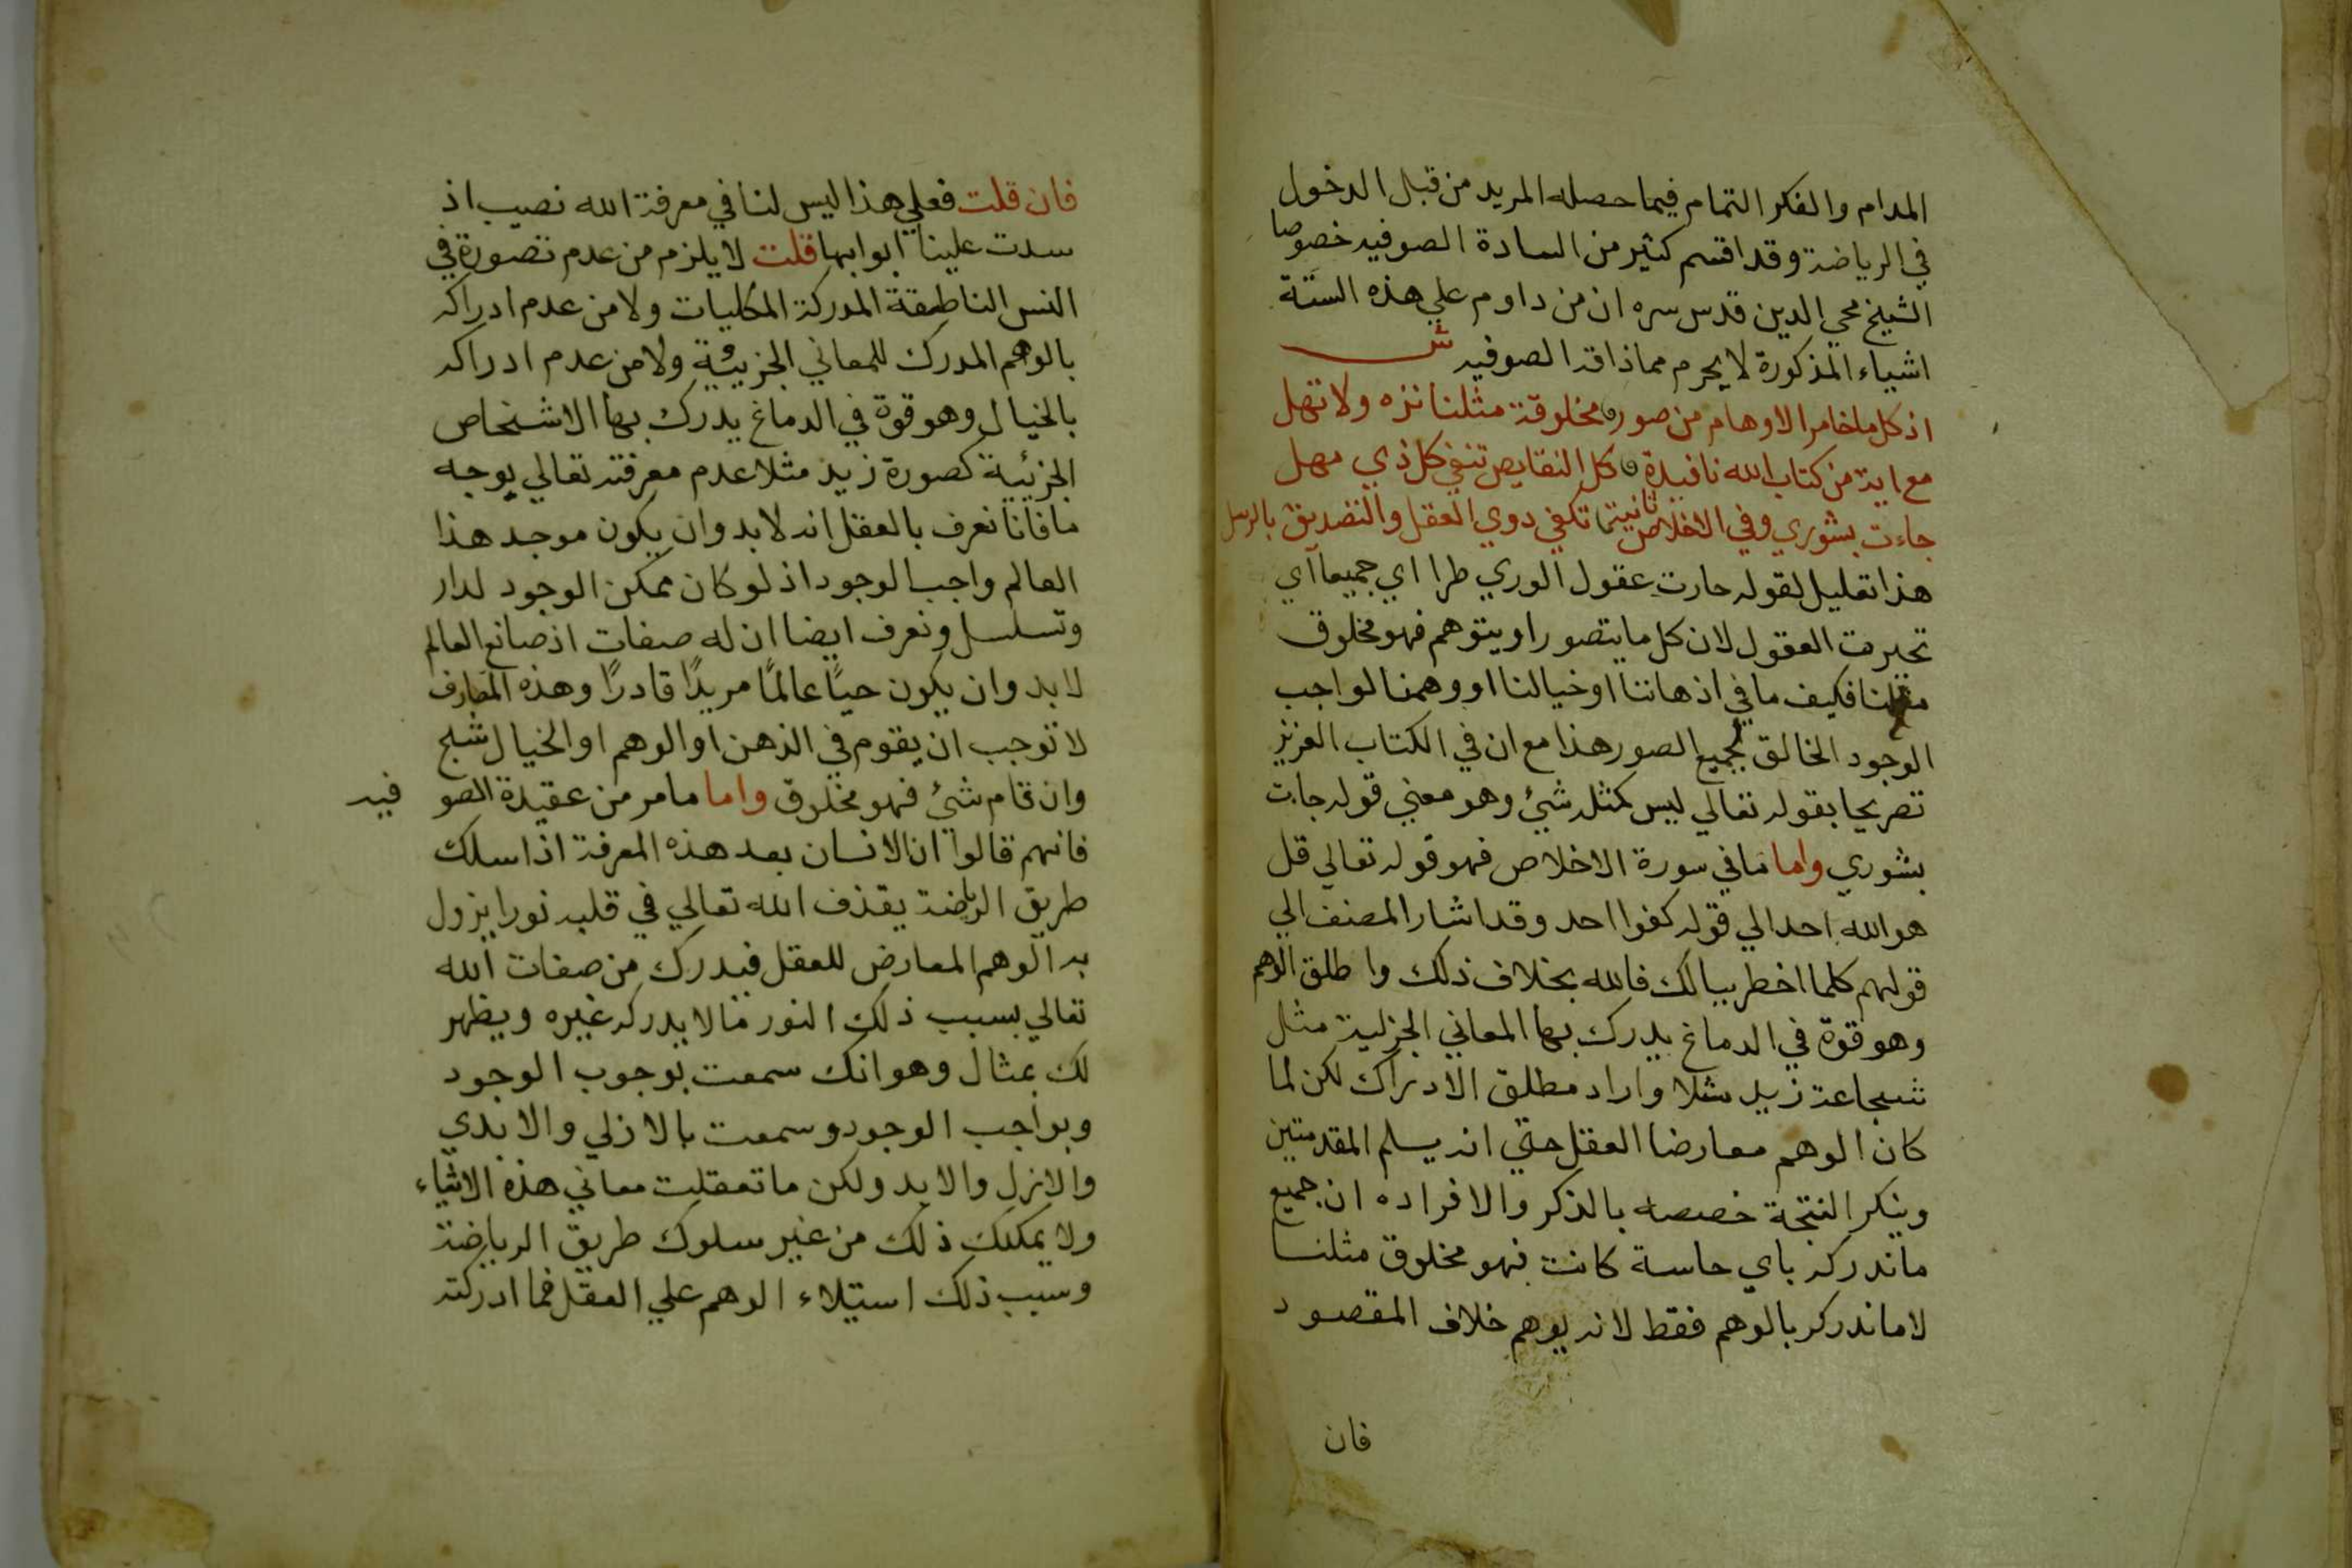 المدام والفكر التمام فيما حصله المريد من قبل الدخول
في الرياضة وقد اقسم كثير من السادة الصوفيه خصوصا
الشيخ محي الدين قدس سره ان من داوم علي هذه الستة
اشياء المذكورة لا يحرم مما ذاقه الصوفيه ش
اذ كل ما خامر الاوهام من صور مخلوقة مثلنا نزه ولا تهل
مع اية من كتاب الله نافية كل النقايص تنفي كل ذي مهل
جاءت بشوري وفي الاخلاص ثانيتها تكفي دوي العقل والتصديق بالرسل
هذا تعليل لقوله حارت عقول الوري طرا اي جميعا اي
تحيرت العقول لان كل ما يتصور او يتوهم فهو مخلوق
مثلنا فكيف ما في اذهاننا او خيالنا او وهمنا لواجب
الوجود الخالق لجميع الصور هذا مع ان في الكتاب العزيز
تصريحا بقوله تعالي ليس كمثله شيئ وهو معني قوله جات
بشوري واما ما في سورة الاخلاص فهو قوله تعالي قل
هو الله احد الي قوله كفوا احد وقد اشار المصنف الي
قولهم كلما اخطر ببالك فالله بخلاف ذلك واطلق الوهم
وهو قوة في الدماغ يدرك بها المعاني الجزئية مثل
شجاعة زيد مثلا واراد مطلق الادراك لكن لما
كان الوهم معارضا العقل حتي انه يسلم المقدمتين
وينكر النتجة خصصه بالذكر والا فراده ان جميع
ما ندركه باي حاسة كانت فهو مخلوق مثلنا
لا ما ندركه بالوهم فقط لانه يوهم خلاف المقصود
فان
فان قلت فعلي هذا ليس لنا في معرفة الله نصيب اذ
سدت علينا ابوابها قلت لا يلزم من عدم تصوره في
النفس الناطقة المدركة الكليات ولا من عدم ادراكه
بالوهم المدرك للمعاني الجزيية ولا من عدم ادراكه
بالخيال وهو قوة في الدماغ يدرك بها الاشخاص
الجزئية كصورة زيد مثلا عدم معرفته تعالي بوجه
ما فانا نعرف بالعقل انه لا بد وان يكون موجد هذا
العالم واجب الوجود اذ لو كان ممكن الوجود لدار
وتسلسل ونعرف ايضا ان له صفات اذ صانع العالم
لا بد وان يكون حيًا عالمًا مريدًا قادرًا وهذه المعارف
لا توجب ان يقوم في الذهن او الوهم او الخيال شبح
وان قام شيئ فهو مخلوق واما ما مر من عقيدة الصوفيه
فانهم قالوا ان الانسان بعد هذه المعرفة اذا سلك
طريق الرياضة يقذف الله تعالي في قلبه نورا يزول
به الوهم المعارض للعقل فيدرك من صفات الله
تعالي بسبب ذلك النور ما لا يدركه غيره ويظهر
لك بمثال وهو انك سمعت بوجوب الوجود
وبواجب الوجود وسمعت بالازلي والابدي
والازل والابد ولكن ما تعقلت معاني هذه الاشياء
ولا يمكنك ذلك من غير سلوك طريق الرياضة
وسبب ذلك استيلاء الوهم علي العقل فما ادركته